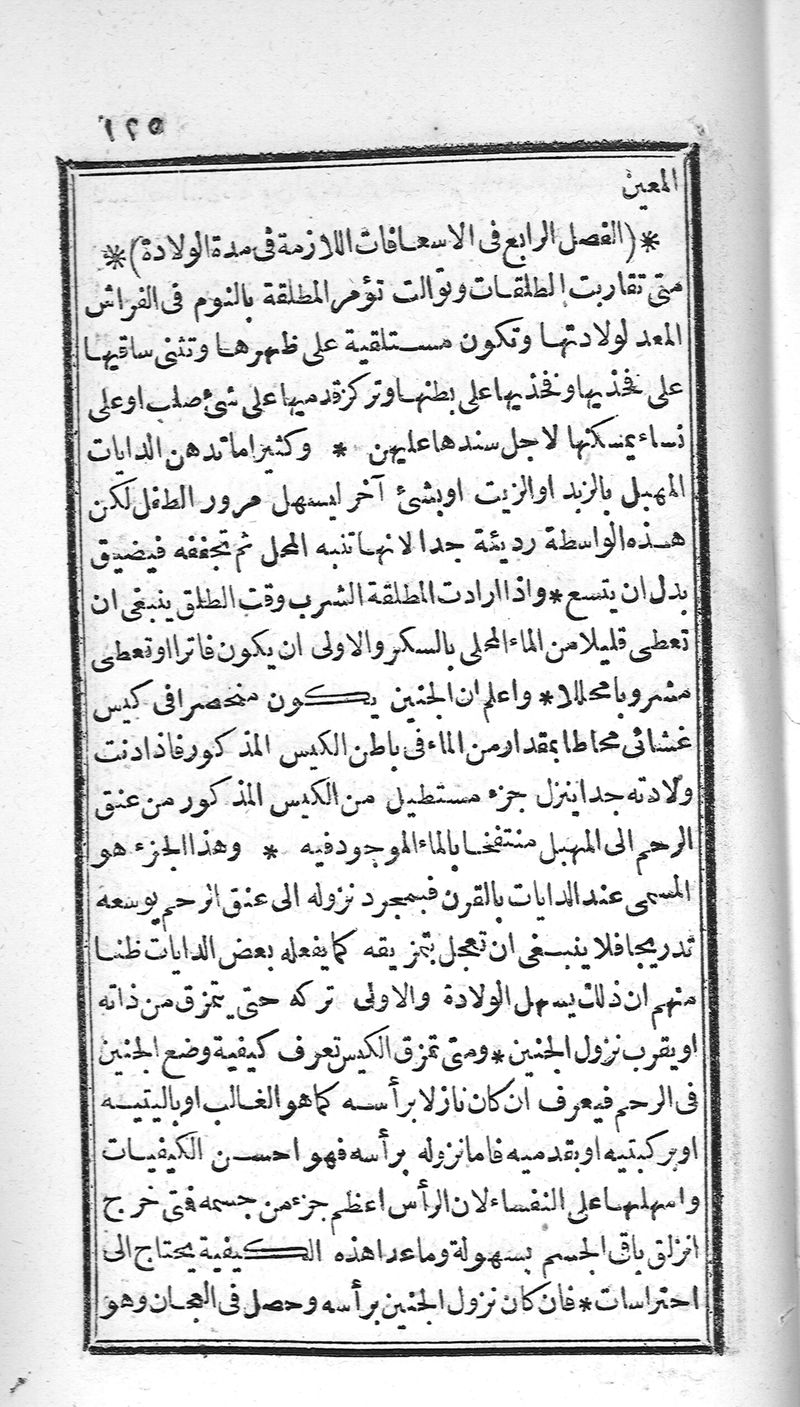 ١٢٥
المعين
*(الفصل الرابع فى الاسعافات اللازمة فى مدة الولادة)*
متى تقاربت الطلقات وتوالت تؤمر المطلقة بالنوم فى الفراش
المعد لولادتها وتكون مستلقية على ظهرها وتثنى ساقيها
على فخذيها وفخذيها على بطنها وتركز قدميها على شئ صلب او على
نساء يمسكنها لاجل سندها عليهن * وكثيرا ما تدهن الدايات
المهبل بالزبد او الزيت او بشئ آخر ليسهل مرور الطفل لكن
هذه الواسطة رديئة جدا لانها تنبه المحل ثم تجففه فيضيق
بدل ان يتسع * واذا ارادت المطلقة الشرب وقت الطلق ينبغى ان
تعطى قليلا من الماء المحلى بالسكر والاولى ان يكون فاترا او تعطى
مشروبا محللا * واعلم ان الجنين يكون منحصرا فى كيس
غشائى محاطا بمقدار من الماء فى باطن الكيس المذكور فاذا دنت
ولادته جدا ينزل جزء مستطيل من الكيس المذكور من عنق
الرحم الى المهبل منتفخا بالماء الموجود فيه * وهذا الجزء هو
المسمى عند الدايات بالقرن فبمجرد نزوله الى عنق الرحم يوسعه
تدريجا فلا ينبغى ان تعجل بتمزيقه كما يفعله بعض الدايات ظنا
منهم ان ذلك يسهل الولادة والاولى تركه حتى يتمزق من ذاته
او يقرب نزول الجنين * ومتى تمزق الكيس تعرف كيفية وضع الجنين
فى الرحم فيعرف ان كان نازلا برأسه كما هو الغالب او باليتيه
او بركبتيه او بقدميه فاما نزوله برأسه فهو احسن الكيفيات
وامهلها على النفساء لان الرأس اعظم جزء من جسمه فتى خرج
انزلق باقى الجسم بسهولة وما عدا هذه الكيفية يحتاج الى
احتراسات * فان كان نزول الجنين برأسه وحصل فى العجان وهو